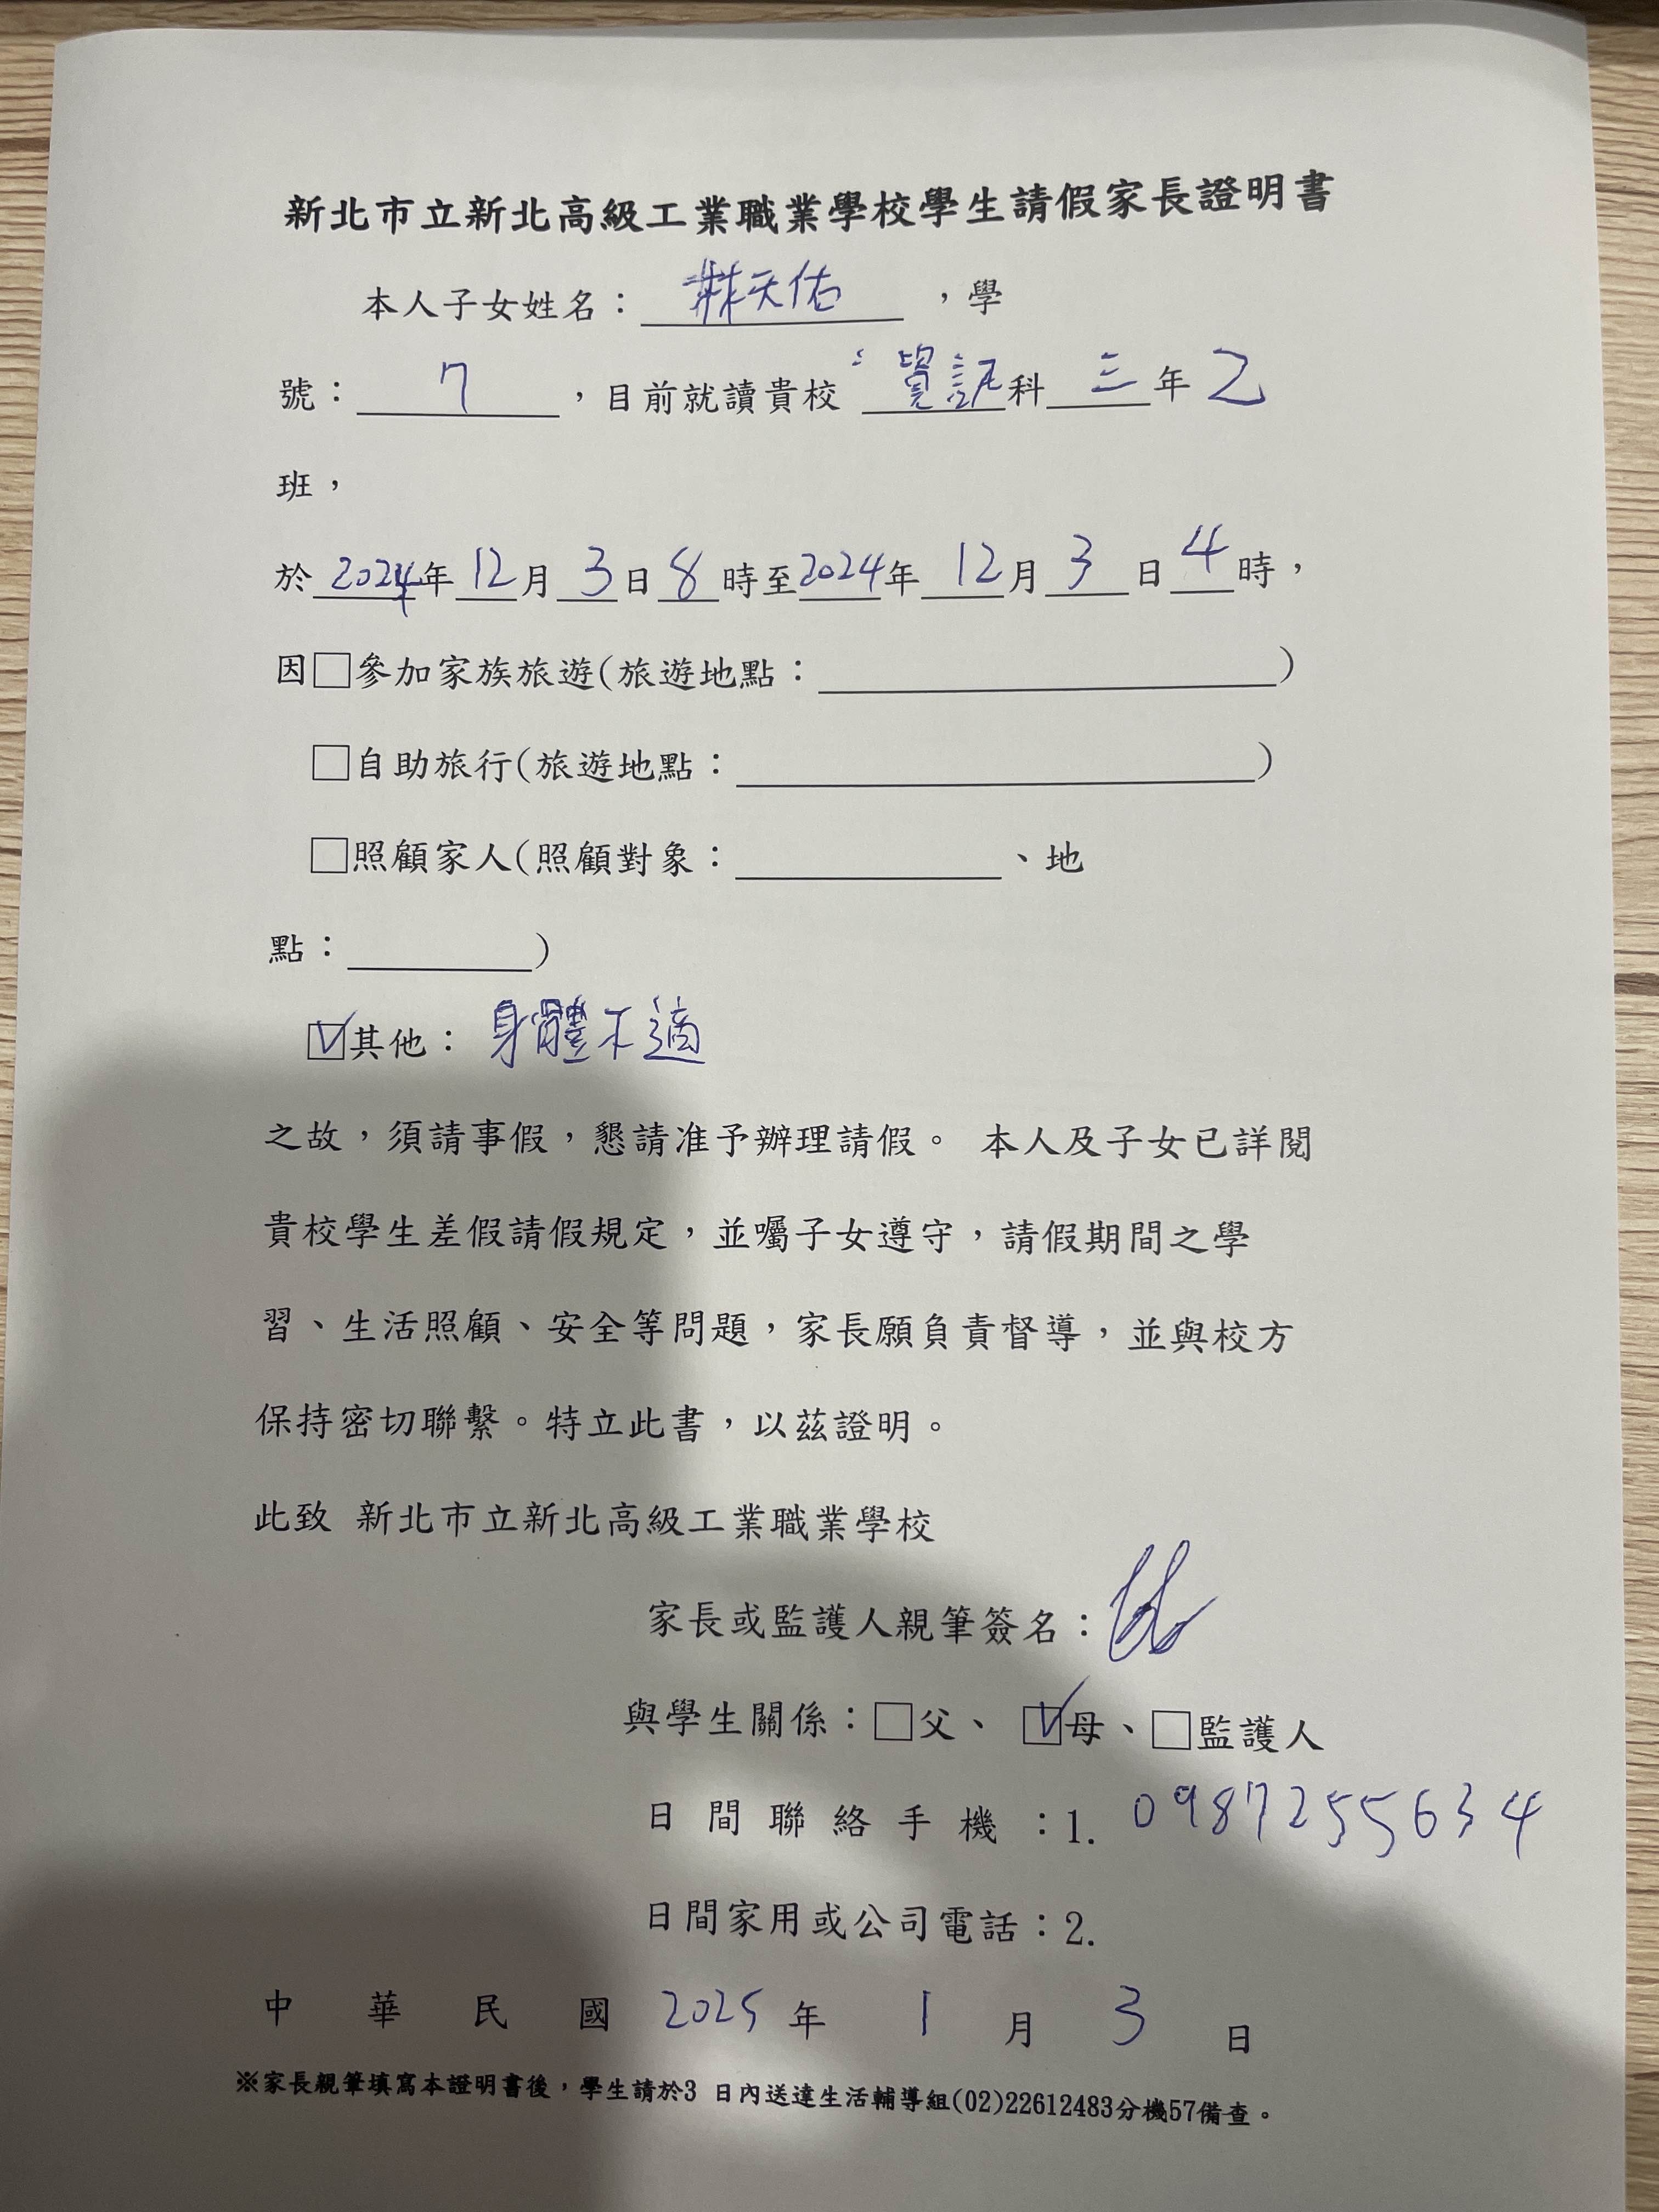 新北市立新北高級工業職業學校學生請假家長證明書
本人子女姓名：林天佑，學
號：7，目前就讀貴校資訊科三年乙
班，
於2024年12月3日8時至2024年12月3日4時，
因□參加家族旅遊(旅遊地點：)
□自助旅行(旅遊地點：)
□照顧家人(照顧對象：、地
點：)
☑其他：身體不適
之故，須請事假，懇請准予辦理請假。 本人及子女已詳閱
貴校學生差假請假規定，並囑子女遵守，請假期間之學
習、生活照顧、安全等問題，家長願負責督導，並與校方
保持密切聯繫。特立此書，以茲證明。
此致 新北市立新北高級工業職業學校
家長或監護人親筆簽名：
與學生關係：□父、☑母、□監護人
日間聯絡手機：1. 0987255634
日間家用或公司電話：2.
中華民國2025年1月3日
※家長親筆填寫本證明書後，學生請於3 日內送達生活輔導組(02)22612483分機57備查。